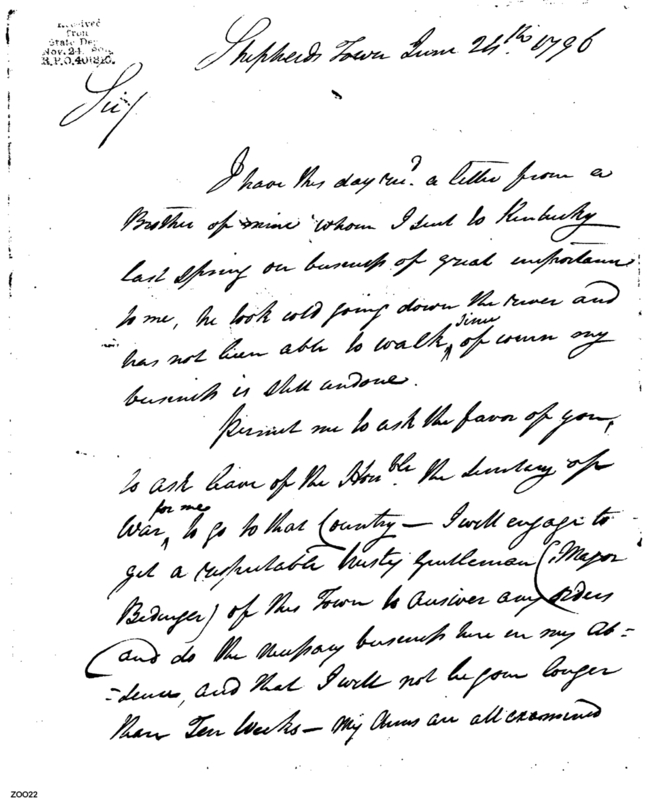 Received
from
State Dep
Nov. 24
R.P.O. 401810.
Shepherds Town June 24th. 1796
Sir/
I have this day recd. a letter from a
Brother of mine whom I sent to Kentucky
last Spring on business of great importance
to me, he took cold going down the river and
has not been able to walk since, of course my
business is still undone.
Permit me to ask the favor of you,
to ask leave of the Honble. the Secretary of
War, for me to go to that Country — I will engage to
get a respectable trusty Gentleman (Major
Bedinger) of this Town to answer any orders
and do the necessary business here in my Ab=
=sence, and that I will not be gone longer
than Ten Weeks — My Arms are all examined
Z0022